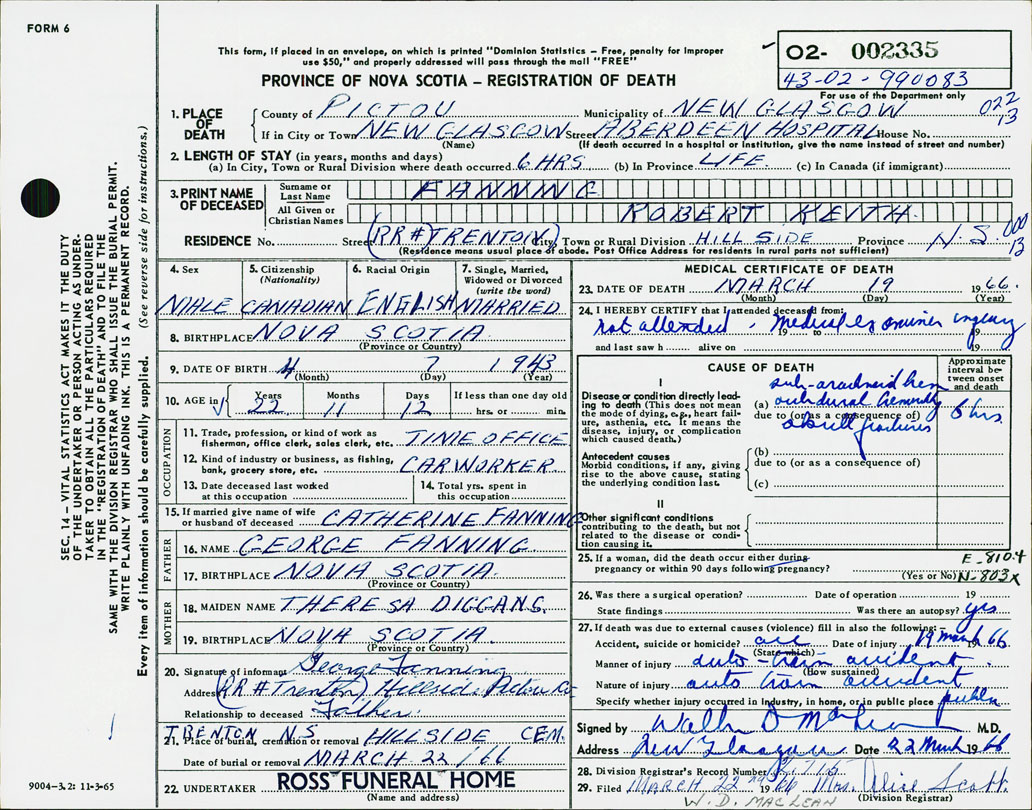 FORM 6
This form, if placed in an envelope, on which is printed "Dominion Statistics – Free, penalty for improper
use $50," and properly addressed will pass through the mail "FREE"
02- 002335
43-02-990083
PROVINCE OF NOVA SCOTIA – REGISTRATION OF DEATH
For use of the Department only
1. PLACE OF DEATH
County of PICTOU Municipality of NEW GLASGOW 022 13
If in City or Town NEW GLASGOW Street ABERDEEN HOSPITAL House No.
(Name) (If death occurred in a hospital or institution, give the name instead of street and number)
2. LENGTH OF STAY (in years, months and days)
(a) In City, Town or Rural Division where death occurred 6 HRS (b) In Province LIFE (c) In Canada (if immigrant)
3. PRINT NAME OF DECEASED
Surname or Last Name FANNING
All Given or Christian Names ROBERT KEITH
RESIDENCE No. Street (RR # TRENTON) City, Town or Rural Division HILLSIDE Province N.S. 000 13
(Residence means usual place of abode. Post Office Address for residents in rural parts not sufficient)
4. Sex MALE
5. Citizenship (Nationality) CANADIAN
6. Racial Origin ENGLISH
7. Single, Married, Widowed or Divorced (write the word) MARRIED
8. BIRTHPLACE NOVA SCOTIA
(Province or Country)
9. DATE OF BIRTH 4 7 1943
(Month) (Day) (Year)
10. AGE in Years Months Days If less than one day old
22 11 12 hrs. or min.
OCCUPATION
11. Trade, profession, or kind of work as fisherman, office clerk, sales clerk, etc. TIME OFFICE
12. Kind of industry or business, as fishing, bank, grocery store, etc. CARWORKER
13. Date deceased last worked at this occupation
14. Total yrs. spent in this occupation
15. If married give name of wife or husband of deceased CATHERINE FANNING
FATHER
16. NAME GEORGE FANNING
17. BIRTHPLACE NOVA SCOTIA.
(Province or Country)
MOTHER
18. MAIDEN NAME THERESA DIGGANS.
19. BIRTHPLACE NOVA SCOTIA.
(Province or Country)
20. Signature of informant George Fanning
Address (RR # Trenton) Hillside Pictou Co
Relationship to deceased Father.
TRENTON N.S
21. Place of burial, cremation or removal HILLSIDE CEM.
Date of burial or removal MARCH 22/66
22. UNDERTAKER ROSS FUNERAL HOME
(Name and address)
MEDICAL CERTIFICATE OF DEATH
23. DATE OF DEATH MARCH 19 1966.
(Month) (Day) (Year)
24. I HEREBY CERTIFY that I attended deceased from:
not attended. Medical examiner
19 to 19
and last saw h alive on 19
CAUSE OF DEATH
Approximate interval between onset and death
I
Disease or condition directly leading to death (This does not mean the mode of dying, e.g., heart failure, asthenia, etc. It means the disease, injury, or complication which caused death.)
sub-arachnoid hem
(a)
due to (or as a consequence of) 6 hrs.
skull fractures
Antecedent causes
Morbid conditions, if any, giving rise to the above cause, stating the underlying condition last.
(b)
due to (or as a consequence of)
(c)
II
Other significant conditions contributing to the death, but not related to the disease or condition causing it.
25. If a woman, did the death occur either during pregnancy or within 90 days following pregnancy? (Yes or No)
E-810.4
N-803X
26. Was there a surgical operation? Date of operation 19
State findings Was there an autopsy? yes
27. If death was due to external causes (violence) fill in also the following:–
Accident, suicide or homicide? acc Date of injury 19 March 1966
(State which)
Manner of injury auto-train accident.
(How sustained)
Nature of injury auto train accident
Specify whether injury occurred in industry, in home, or in public place public
Signed by M.D.
Address New Glasgow Date 22 March 1966
28. Division Registrar's Record Number
29. Filed MARCH 22 1966 Mrs. Alice Scott.
(Division Registrar)
W. D. MACLEAN
SEC. 14 – VITAL STATISTICS ACT MAKES IT THE DUTY
OF THE UNDERTAKER OR PERSON ACTING AS UNDER-
TAKER TO OBTAIN ALL THE PARTICULARS REQUIRED
IN THE "REGISTRATION OF DEATH" AND TO FILE THE
SAME WITH THE DIVISION REGISTRAR WHO SHALL ISSUE THE BURIAL PERMIT.
WRITE PLAINLY WITH UNFADING INK. THIS IS A PERMANENT RECORD.
Every item of information should be carefully supplied. (See reverse side for instructions.)
9004-3.2: 11-3-65